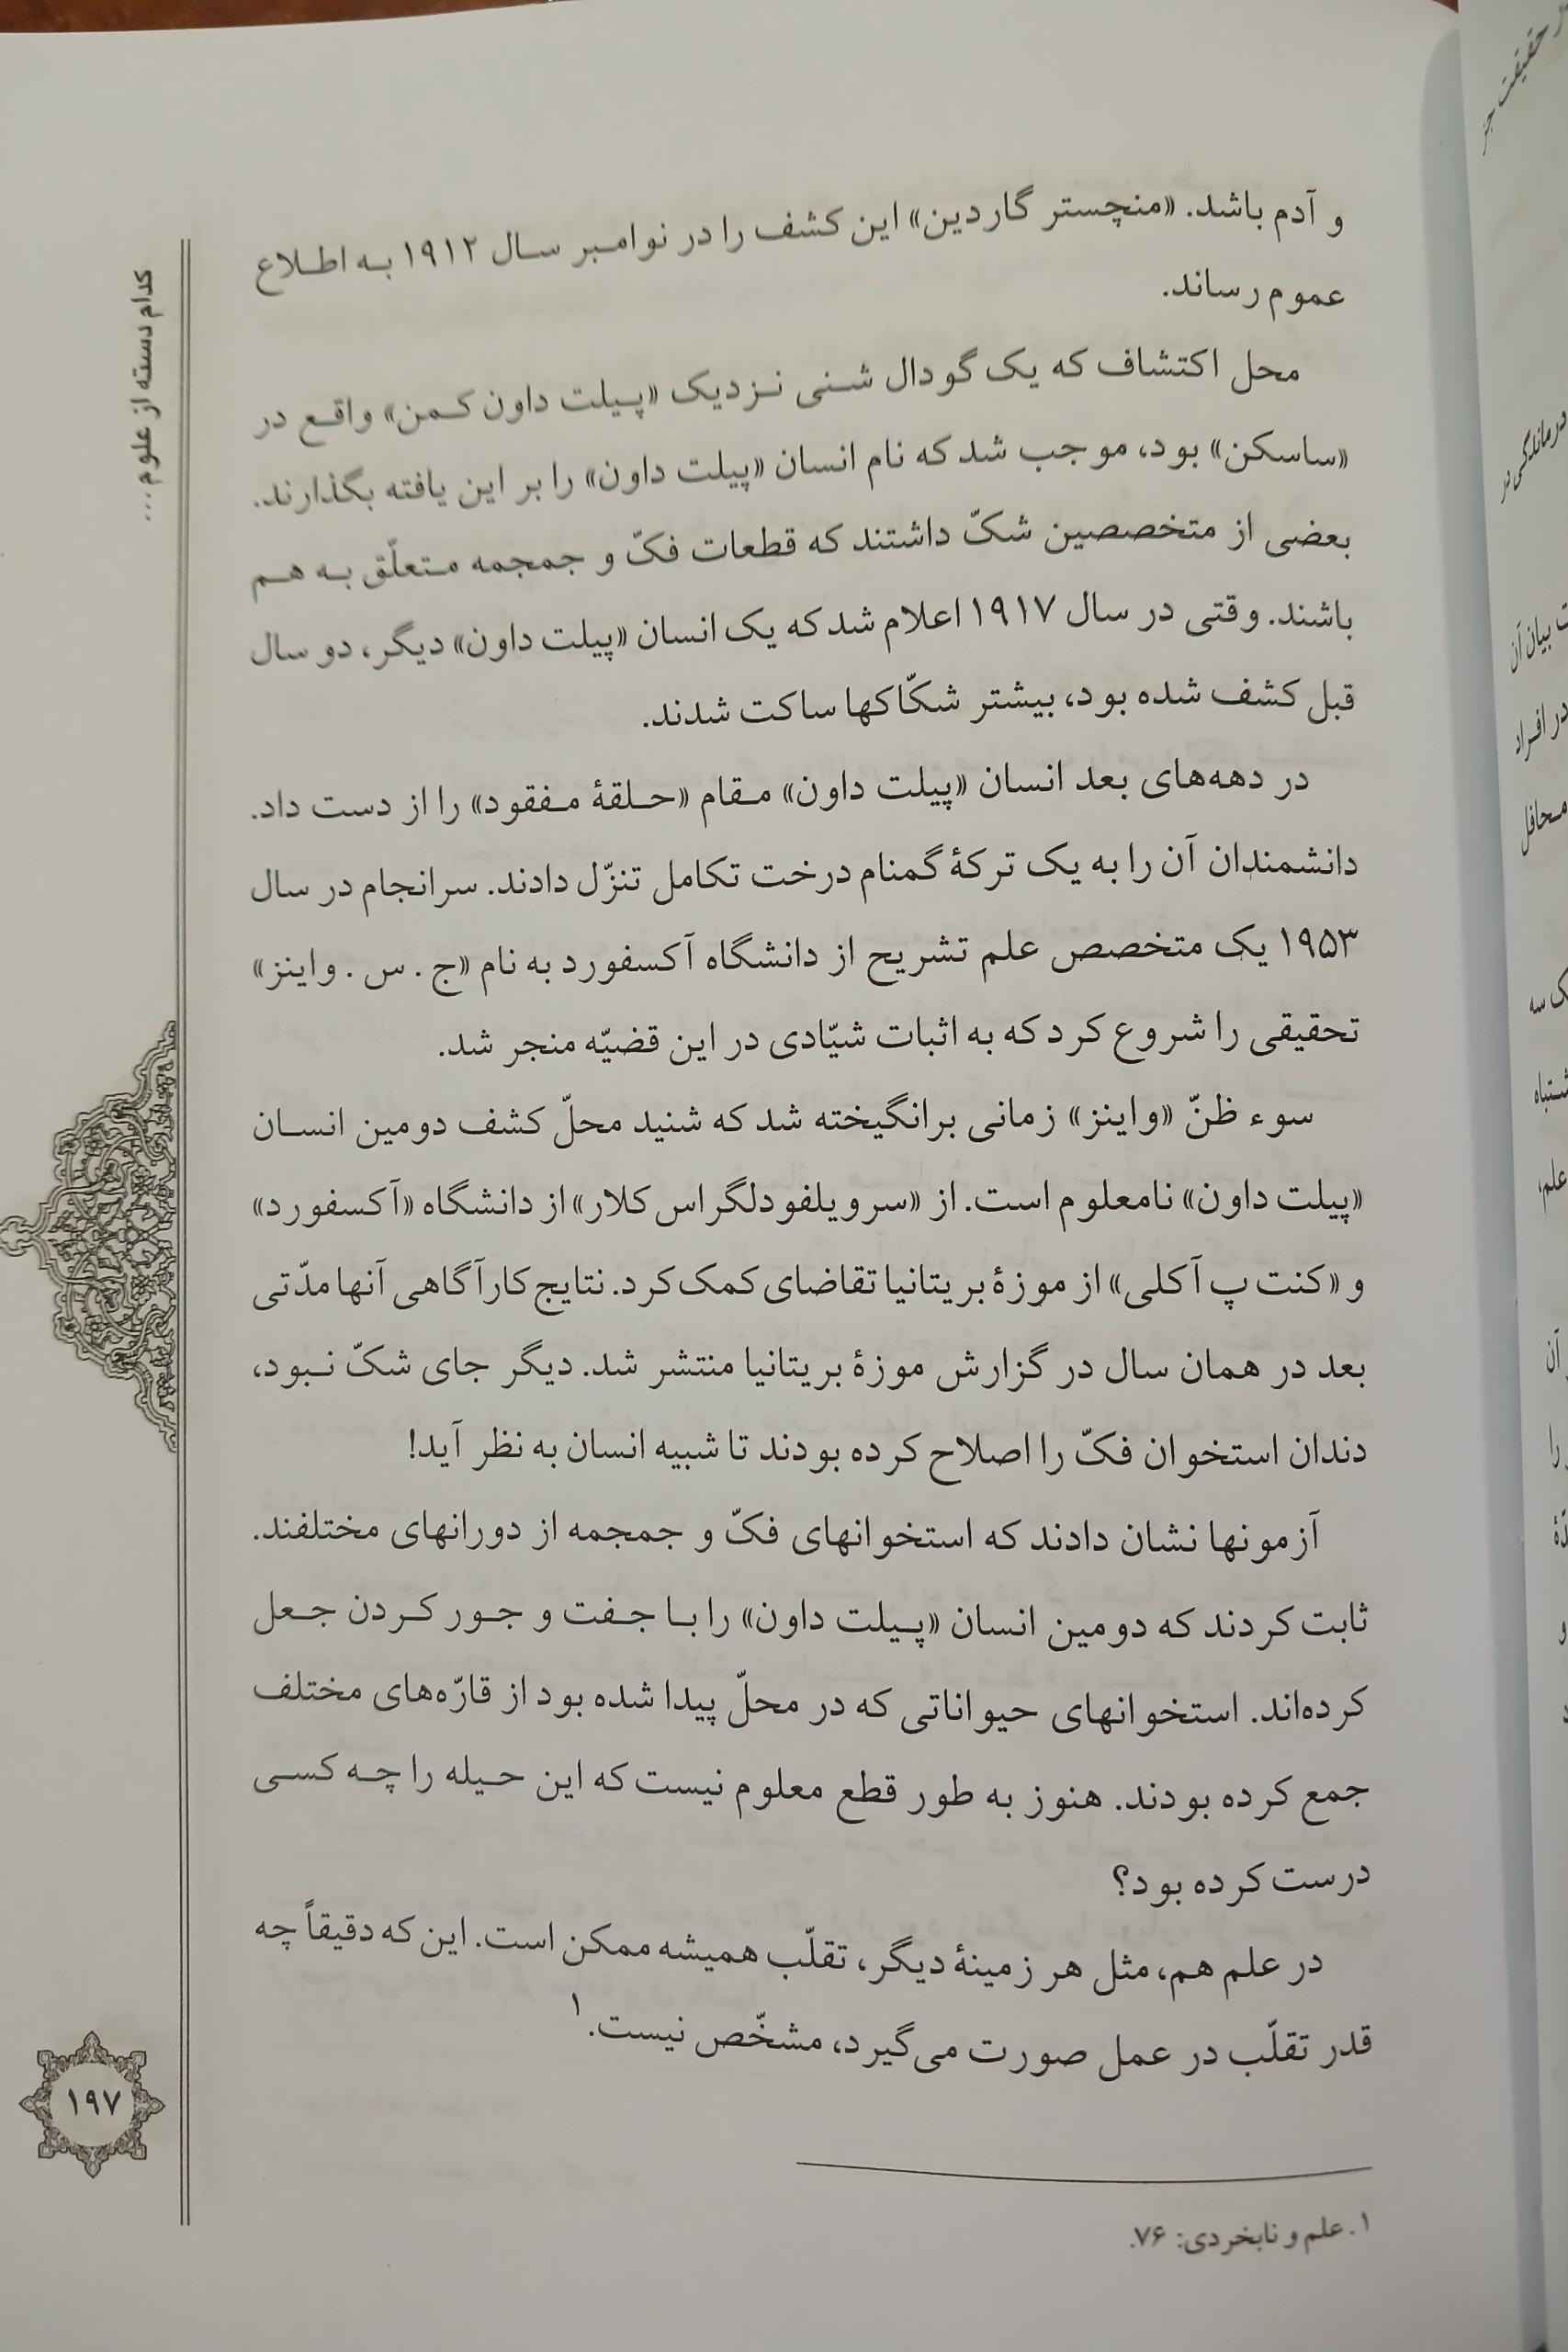 و آدم باشد. «منچستر گاردین» این کشف را در نوامبر سال ۱۹۱۲ به اطلاع
عموم رساند.
محل اکتشاف که یک گودال شنی نزدیک «پیلت داون کمن» واقع در
«ساسکن» بود، موجب شد که نام انسان «پیلت داون» را بر این یافته بگذارند.
بعضی از متخصصین شکّ داشتند که قطعات فکّ و جمجمه متعلّق به هم
باشند. وقتی در سال ۱۹۱۷ اعلام شد که یک انسان «پیلت داون» دیگر، دو سال
قبل کشف شده بود، بیشتر شکّاکها ساکت شدند.
در دهه‌های بعد انسان «پیلت داون» مقام «حلقهٔ مفقود» را از دست داد.
دانشمندان آن را به یک ترکهٔ گمنام درخت تکامل تنزّل دادند. سرانجام در سال
۱۹۵۳ یک متخصص علم تشریح از دانشگاه آکسفورد به نام «ج . س . واینز»
تحقیقی را شروع کرد که به اثبات شیّادی در این قضیّه منجر شد.
سوء ظنّ «واینز» زمانی برانگیخته شد که شنید محلّ کشف دومین انسان
«پیلت داون» نامعلوم است. از «سرویلفودلگراس کلار» از دانشگاه «آکسفورد»
و «کنت پ آکلی» از موزهٔ بریتانیا تقاضای کمک کرد. نتایج کارآگاهی آنها مدّتی
بعد در همان سال در گزارش موزهٔ بریتانیا منتشر شد. دیگر جای شکّ نبود،
دندان استخوان فکّ را اصلاح کرده بودند تا شبیه انسان به نظر آید!
آزمونها نشان دادند که استخوانهای فکّ و جمجمه از دورانهای مختلفند.
ثابت کردند که دومین انسان «پیلت داون» را با جفت و جور کردن جعل
کرده‌اند. استخوانهای حیواناتی که در محلّ پیدا شده بود از قارّه‌های مختلف
جمع کرده بودند. هنوز به طور قطع معلوم نیست که این حیله را چه کسی
درست کرده بود؟
در علم هم، مثل هر زمینهٔ دیگر، تقلّب همیشه ممکن است. این که دقیقاً چه
قدر تقلّب در عمل صورت می‌گیرد، مشخّص نیست.۱
۱. علم و نابخردی: ۷۶.
کدام دسته از علوم...
۱۹۷
حقیقت جز
درماندگی در
بیان آن
در افراد
محافل
ک سه
علم،
آن
را
و